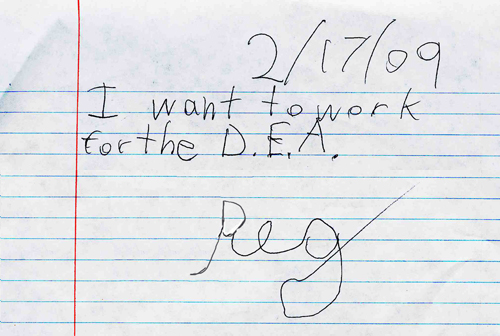 2/17/09
I want to work
for the D.E.A.
Reg